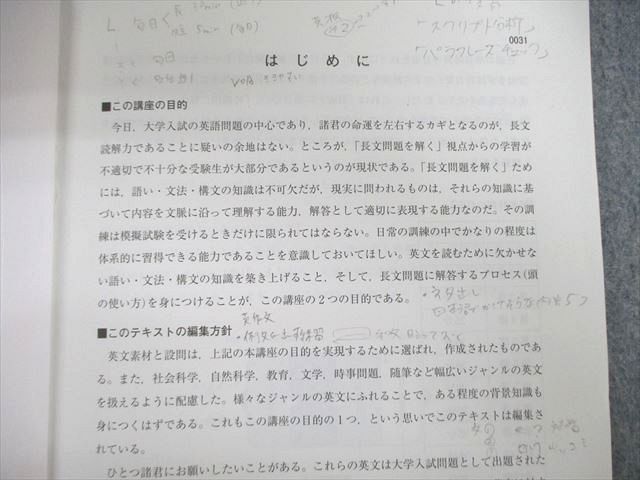 「スクリプト分析」
0031
「パラフレーズチェック」
毎日
5min (毎日)
はじめに
■この講座の目的
今日，大学入試の英語問題の中心であり，諸君の命運を左右するカギとなるのが，長文
読解力であることに疑いの余地はない。ところが，「長文問題を解く」視点からの学習が
不適切で不十分な受験生が大部分であるというのが現状である。「長文問題を解く」ため
には，語い・文法・構文の知識は不可欠だが，現実に問われるものは，それらの知識に基
づいて内容を文脈に沿って理解する能力，解答として適切に表現する能力なのだ。その訓
練は模擬試験を受けるときだけに限られてはならない。日常の訓練の中でかなりの程度は
体系的に習得できる能力であることを意識しておいてほしい。英文を読むために欠かせな
い語い・文法・構文の知識を築き上げること，そして，長文問題に解答するプロセス(頭
の使い方)を身につけることが，この講座の２つの目的である。
・ネタ出し
英作文
■このテキストの編集方針
英文素材と設問は，上記の本講座の目的を実現するために選ばれ，作成されたものであ
る。また，社会科学，自然科学，教育，文学，時事問題，随筆など幅広いジャンルの英文
を扱えるように配慮した。様々なジャンルの英文にふれることで，ある程度の背景知識も
身につくはずである。これもこの講座の目的の１つ，という思いでこのテキストは編集さ
れている。
ひとつ諸君にお願いしたいことがある。これらの英文は大学入試問題として出題された